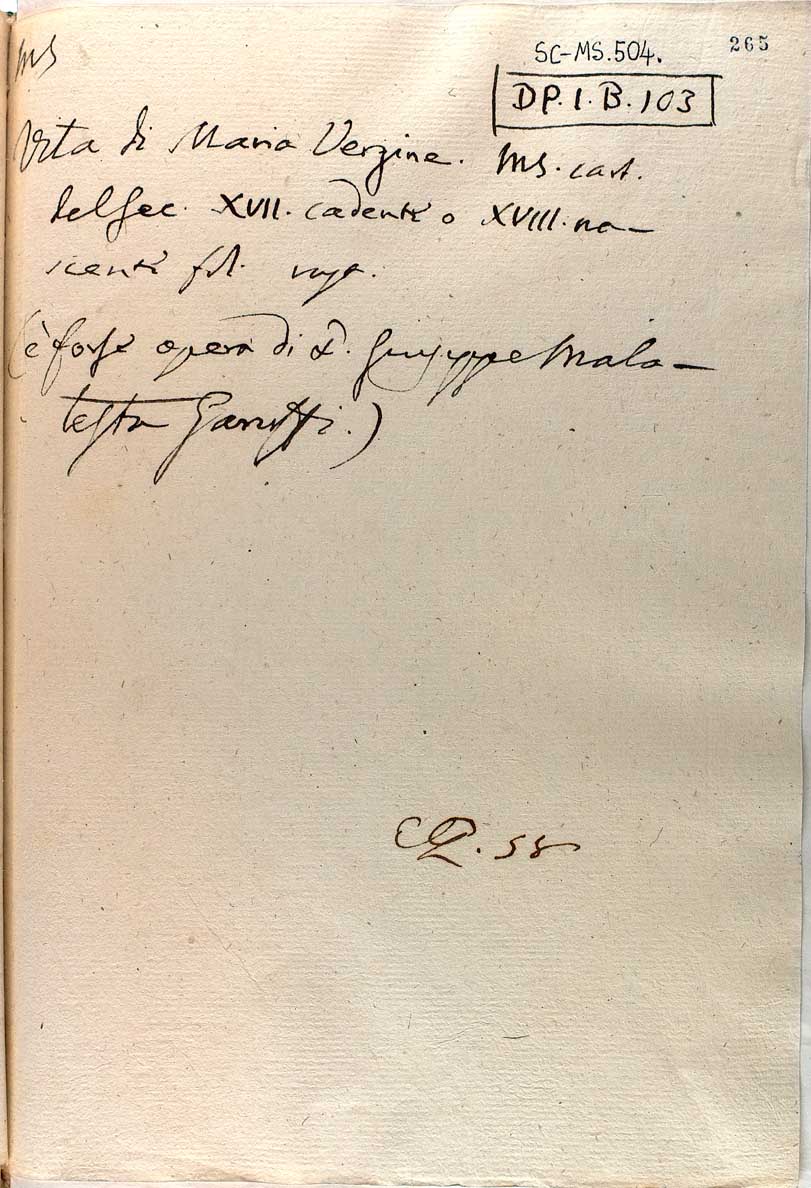 SC-MS.504.
265
MS
DP.I.B.103
Vita di Maria Vergine. MS. cart.
del Sec. XVII. cadente o XVIII. na-
scente fol.
(è forse opera di D. Giuseppe Mala-
testa Garuffi.)
58